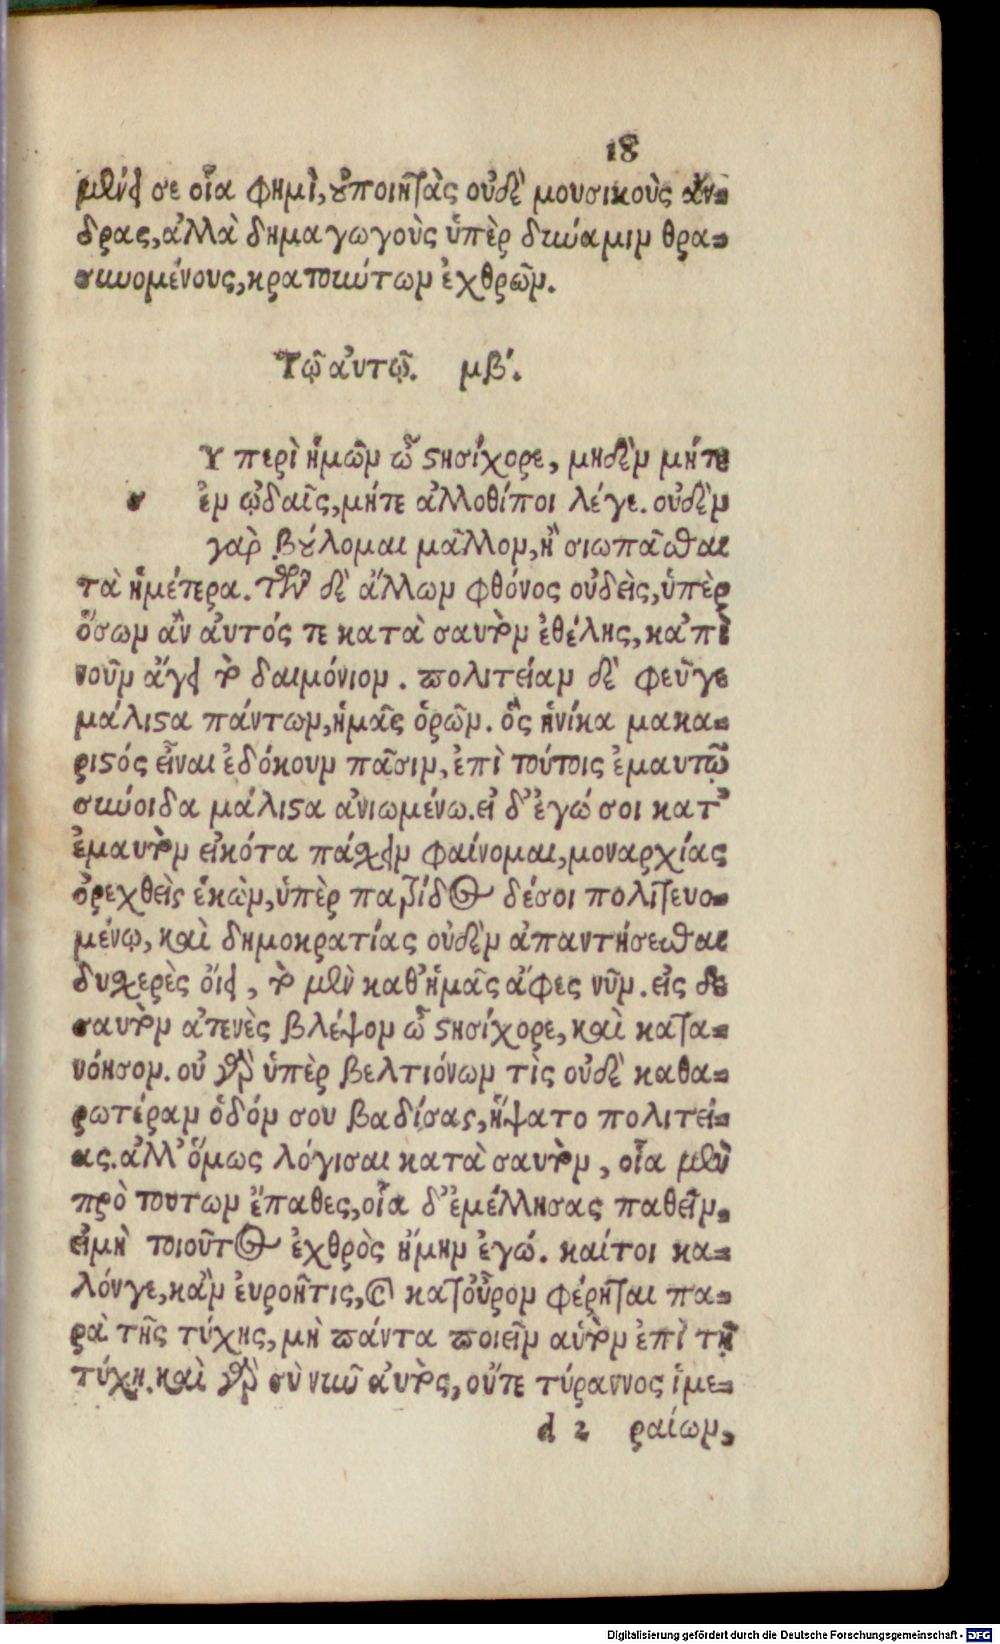 18
μένει σε οἷα φημὶ, οὐ ποιητὰς οὐδὲ μουσικοὺς ἄν-
δρας, ἀλλὰ δημαγωγοὺς ὑπὲρ δύναμιν θρα-
συνομένους, κρατούντων ἐχθρῶν.
Τῷ αὐτῷ. μβ´.
Υ περὶ ἡμῶν ὦ στησίχορε, μηδὲν μήτε
ἐν ᾠδαῖς, μήτε ἀλλοθίποι λέγε. οὐδὲν
γὰρ βούλομαι μᾶλλον, ἢ σιωπᾶσθαι
τὰ ἡμέτερα. τῶν δὲ ἄλλων φθόνος οὐδεὶς, ὑπὲρ
ὅσων ἂν αὐτός τε κατὰ σαυτὸν ἐθέλης, κἀπὶ
νοῦν ἄγει τὸ δαιμόνιον. πολιτείαν δὲ φεῦγε
μάλιστα πάντων, ἡμᾶς ὁρῶν. ὃς ἡνίκα μακα-
ριστός εἶναι ἐδόκουν πᾶσιν, ἐπὶ τούτοις ἐμαυτῷ
σύνοιδα μάλιστα ἀνιωμένω. εἰ δ' ἐγώ σοι κατ'
ἐμαυτὸν εἰκότα πάσχειν φαίνομαι, μοναρχίας
ὀρεχθεὶς ἑκὼν, ὑπὲρ πατρίδος δέσοι πολιτευο-
μένῳ, καὶ δημοκρατίας οὐδὲν ἀπαντήσεσθαι
δυσχερὲς οἴει, τὸ μὲν καθ' ἡμᾶς ἄφες νῦν. εἰς δὲ
σαυτὸν ἀτενὲς βλέψον ὦ στησίχορε, καὶ κατα-
νόησον. οὐ γὰρ ὑπὲρ βελτιόνων τὶς οὐδὲ καθα-
ρωτέραν ὁδόν σου βαδίσας, ἥψατο πολιτεί-
ας. ἀλλ' ὅμως λόγισαι κατὰ σαυτὸν, οἷα μὲν
πρὸ τουτων ἔπαθες, οἷα δ' ἐμέλλησας παθεῖν,
εἰμὴ τοιοῦτος ἐχθρὸς ἤμην ἐγώ. καίτοι κα-
λόνγε, κἂν ἐυροῆτις, καὶ κατοὖρον φέρηται πα-
ρὰ τῆς τύχης, μὴ πάντα ποιεῖν αὑτὸν ἐπὶ τῇ
τύχῃ. καὶ γὰρ σὺ νῦν αὐτὸς, οὔτε τύραννος ἱμε-
d 2 ραίων,